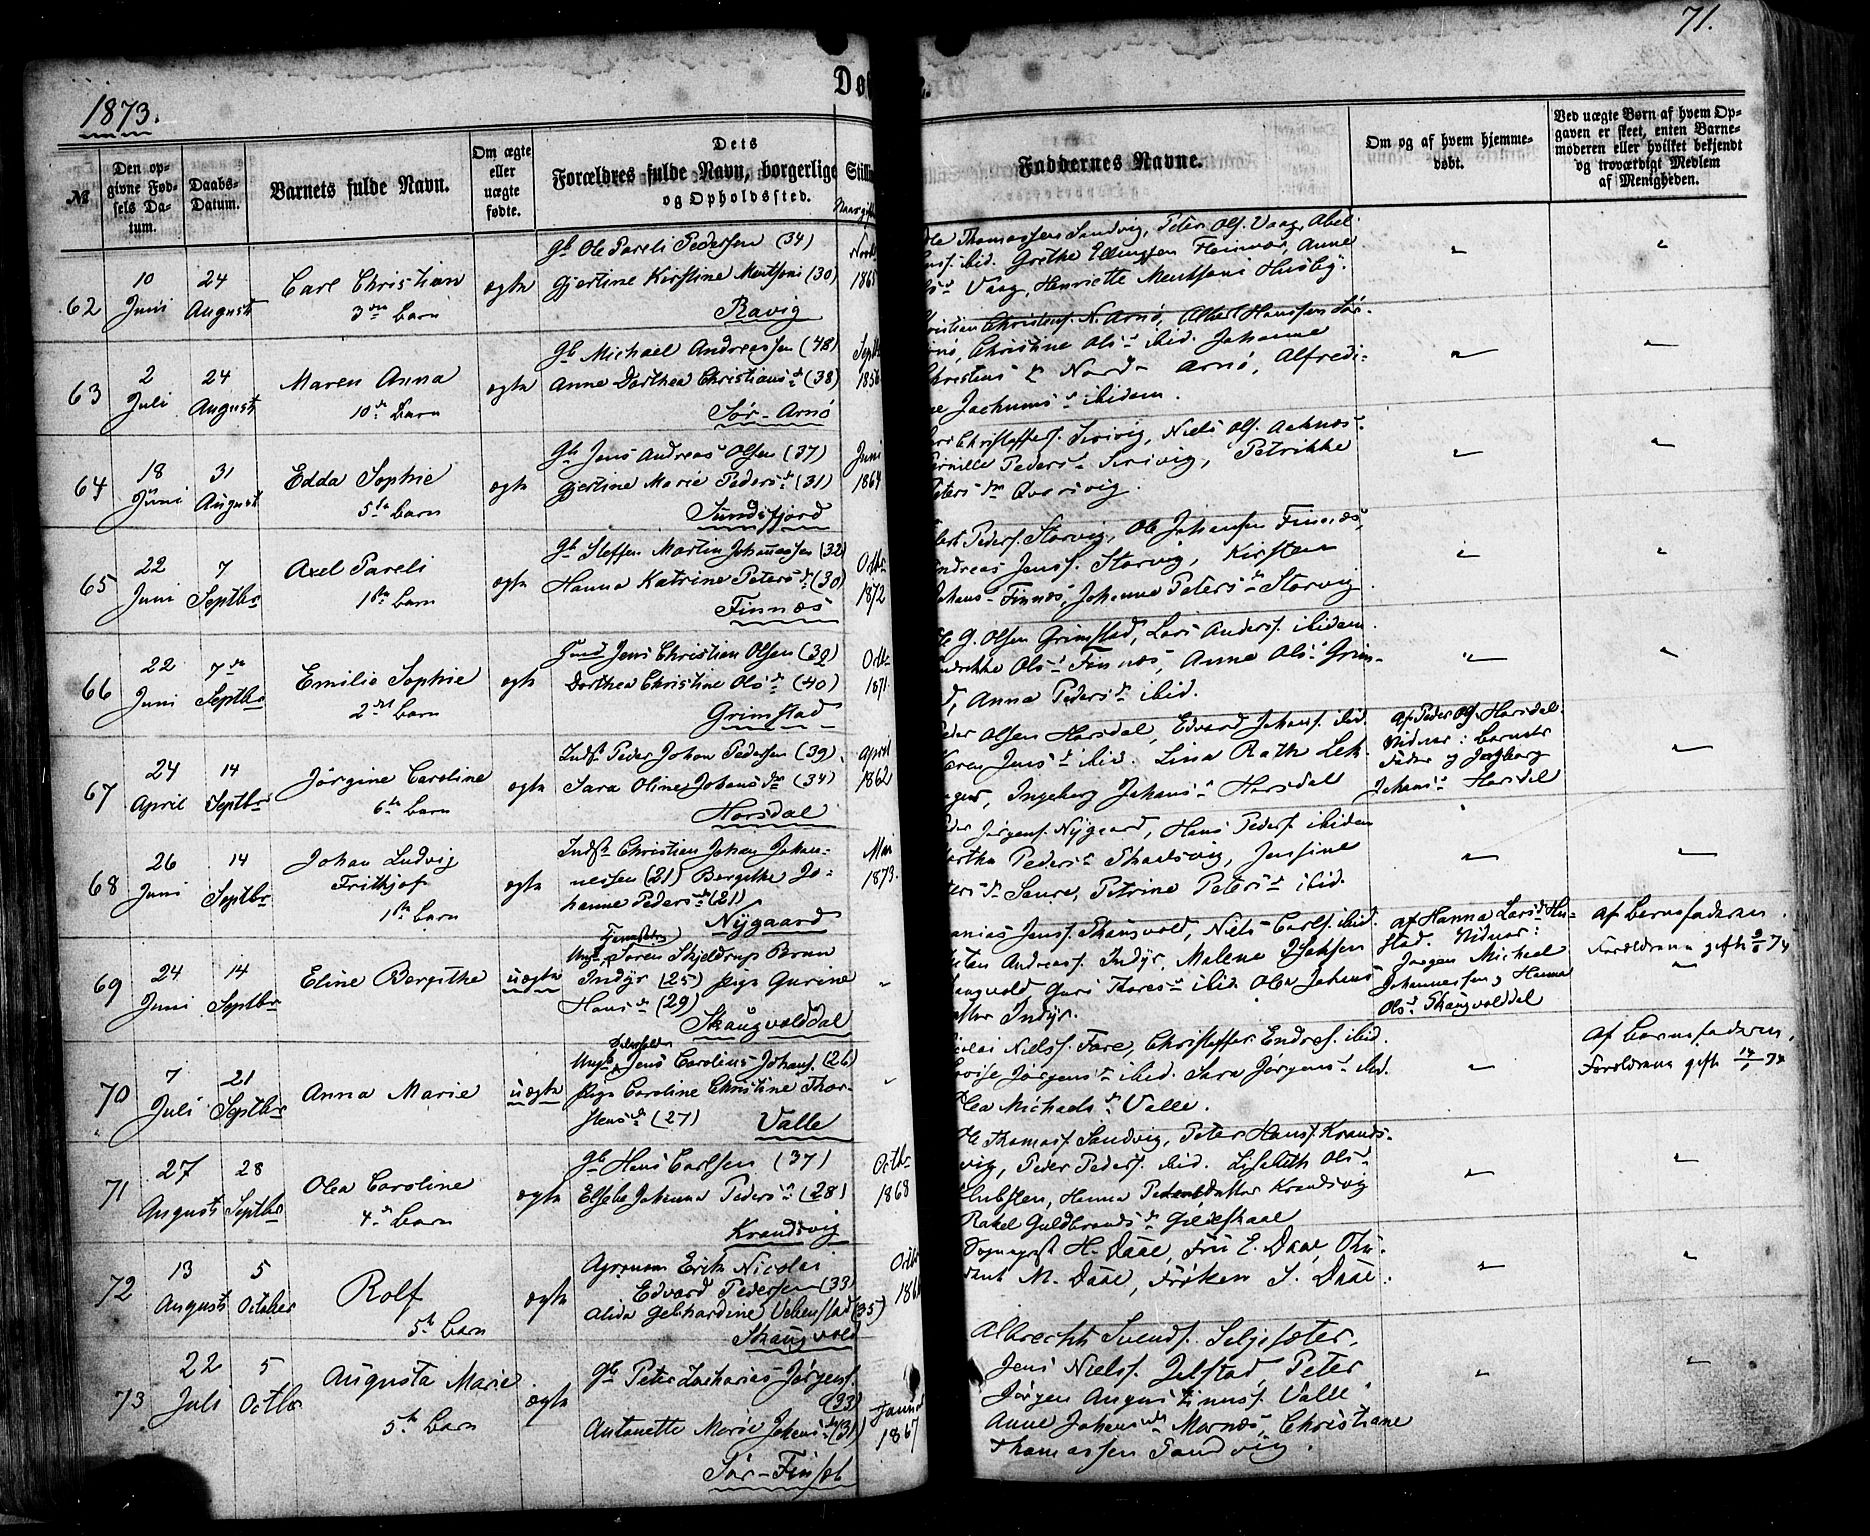 71.
1873.
Døbte.
№
Den opgivne Fødsels Datum.
Daabs-Datum.
Barnets fulde Navn.
Om ægte eller uægte født.
Dets Forældres fulde Navn, borgerlige Stilling og Opholdssted.
Faddernes Navne.
Om og af hvem hjemmedøbt.
Ved uægte Børn af hvem Opgaven er skeet, enten Barnemoderen eller hvilket bekjendt og troværdigt Medlem af Menigheden.
62
10 Juni
24 August
Carl Christian
3die barn
ægte
Gb Ole Pareli Pedersen (34)
Gjertine Kirstine Mentsdtr (30)
Ravig
1865
Ole Thomassen Sandvig, Peter Ols. Vaag, Abel
ibid. Grethe Ellingsen Fleinvær, Anne
Vaag, Henriette Husby.
63
2 Juli
24 August
Maren Anna
10de barn
ægte
Gb Michael Andreassen (48)
Anne Dorthea Christians d (38)
Sør-Arnø
Septbr 1856
Christian Christens. N. Arnø, Hanssen Sør-
Arnø, Christine Ols d ibid. Johanne
Christens d Nord-Arnø, Alfredi-
ne Jachums d ibidem.
64
18 Juni
31 August
Edda Sophie
5te barn
ægte
Gb Jens Andreas Olsen (37)
Gjertine Marie Peders d (31)
Sundsfjord
Juni 1864
Christoffers. Niels Ols.
Pernille Peders d Petrikke
Peters d Qvarsvig.
65
22 Juni
7 Septbr
Axel Pareli
1ste barn
ægte
Gb Steffen Martin Johannessen (32)
Hanna Katrine Peters d (30)
Finnæs
Octbr 1872
Peders. Storvig, Ole Johansen Finnæs,
Andreas Jenss. Storvig, Kirsten
Johans d Finnæs, Johanna Peters d Storvig
66
22 Juni
7de Septbr
Emilie Sophie
2det barn
ægte
Gmd Jens Christian Olsen (39)
Dorthea Christine Ols d (40)
Grimstad
Octbr 1871
Ole G. Olsen Grimstad, Lars Anders. ibidem.
Ols d Finnæs, Anne Ols d Grim-
stad, Anna Peders d ibid.
67
24 April
14 Septbr
Jørgine Caroline
6te barn
ægte
Inds Peder Johan Pedersen (39)
Sara Oline Johans d (34)
Horsdal
April 1862
Peder Olsen Horsdal, Edvard Johans. ibid.
Karen Jens d ibid. Lina Rath Lek-
anger, Ingeborg Johans d Horsdal
af Peder Ols. Horsdal.
Vidner: barnets
Fader og Ingeborg
Johans d Horsdal
68
26 Juni
14 Septbr
Johan Ludvig
Frithjof
1ste barn
ægte
Indst Christian Johan Johan-
nesen (21) Bergithe Jo-
hanne Peders d (21)
Nygaard
Mai 1873.
Peder Jørgens. Nygaard, Hans Peders. ibidem
Martha Peders d Skaalsvig, Jensine
Peters d Saura, Petrine Peters d ibid.
69
24 Juni
14 Septbr
Eline Bergithe
uægte
Ungk Søren Skjeldrup Brun
Indyr (25) Pige Gurine
Hans d (29)
Skaugvolddal
Jenss. Skaugvold, Niels Carls. ibid.
Andreass. Indyr, Malene Isaksen
Skaugvold Guri Thores d ibid. Olea Johans
datter Indyr.
af Hanna Lars d Hu-
stad. Vidner:
Jørgen Michael
Johannessen og Hanna
Ols d Skaugvolddal
Af Barnefaderen.
Forældrene gift
70
7 Juli
21 Septbr
Anna Marie
uægte
Ungk Jens Carolius Johans. (26)
Pige Caroline Christine Thor-
stens d (27)
Valle
Nicolai Nielss. Fore, Christoffer Endres. ibid.
Jørgens d ibid. Sara Jørgens d ibid.
Olea Michaels d Valle.
Af barnefaderen,
Forældrene gift
71
27 August
28 Septbr
Olea Caroline
4de barn
ægte
Gb Hans Carlsen (37)
Elsebe Johanna Peders d (28)
Krandsvig
Octbr 1868
Ole Thomass. Sandvig, Peter Hanss. Krands-
vig, Peder Peders. ibid. Lisebeth Ols d
Hanna Pedersdatter Krandsvig
Rakel Guldbrands d Gildeskaal
72
13 August
5 October
Rolf
5te barn
ægte
Agronom Erik Nicolai
Edvard Pedersen (33)
Alida Gebhardine (35)
Skaugvold
Sognepræst H. Daae, Fru E. Daae,
M. Daae, Frøken S. Daae.
73
22 Juli
5 Octbr
Augusta Marie
5te barn
ægte
Gb Peter Zacharias Jørgens.
(33)
Antonette Marie Johans d (31)
Januar 1867
Albrecht Svends. Seljesæter,
Jens Nielss. Jelstad, Peter
Jørgen August Valle
Anne Johans d Mornæs, Christiane
Thomassen Sandvig.